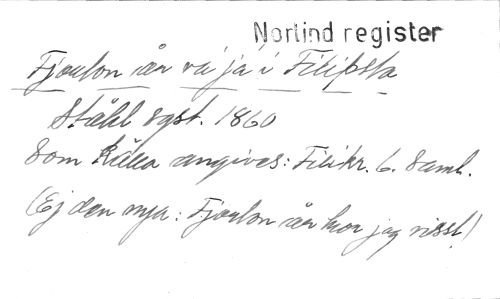 Norlind register
Fjorton år va' ja' i Filipsta
Ståhl 1860
Som källa angives: Filikr. 6. Saml.
(Ej den nya: Fjorton år tror jag visst!)